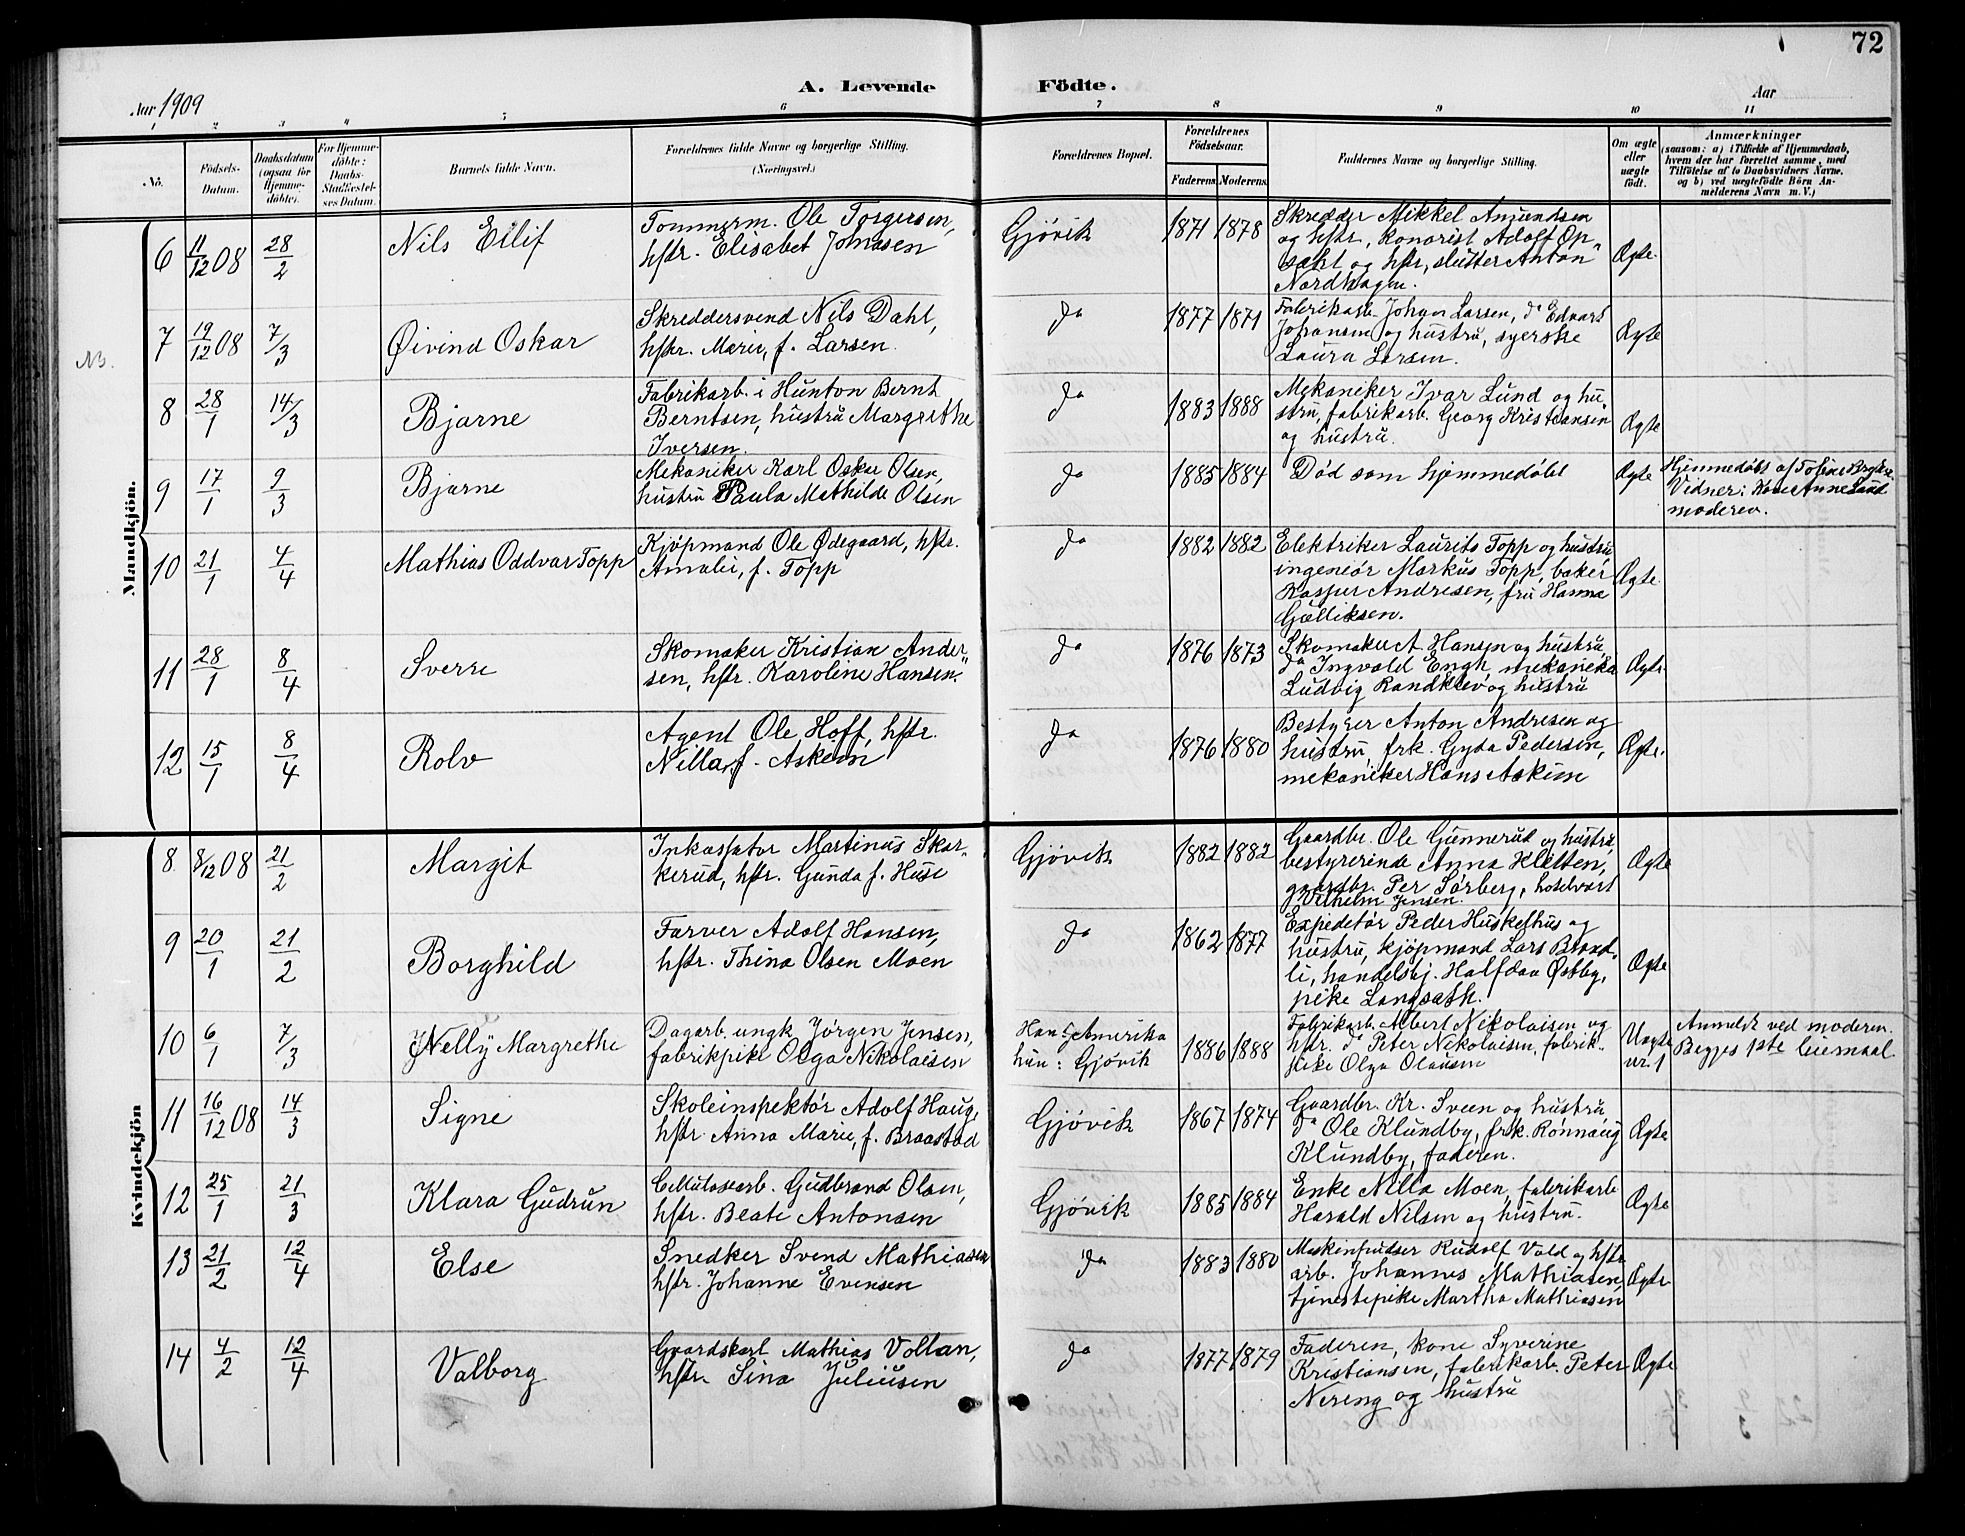 72
A. Levende Födte.
Aar 1909
Aar
1 2 3 4 5 6 7 8 9 10 11
No.
Födsels-
Datum.
Daabsdatum
(ogsaa for
Hjemme-
döbte).
For Hjemme-
döbte:
Daabs-
Stadfæstel-
ses Datum.
Barnets fulde Navn.
Forældrenes fulde Navne og borgerlige Stilling.
(Næringsvei.)
Forældrenes Bopæl.
Forældrenes
Födselsaar.
Faderens. Moderens.
Faddernes Navne og borgerlige Stilling.
Om ægte
eller
uægte
födt.
Anmærkninger
(saasom: a) i Tilfælde af Hjemmedaab,
hvem der har forrettet samme, med
Tilföielse af to Daabsvidners Navne.
og b) ved uægtefödte Börn An-
melderens Navn m. V.)
Mandkjön.
6 11/12 08 28/2 Nils Eilif
Tömmerm. Ole Torgersen,
hstr. Elisabet Johnsen
Gjøvik 1871 1878
Skredder Mikkel Amundsen
og hstr, konorist Adolf Op-
sahl og hstr, slutter Anton
Nordhagen.
Ægte.
NB.
7 19/12 08 7/3 Øivind Oskar
Skreddersvend Nils Dahl,
hstr. Marie, f. Larsen.
do 1877 1871
Fabrikarb. Johan Larsen, do Edvard
Johansen og hustru, syerske
Laura Larsen.
Ægte
8 28/1 14/3 Bjarne
Fabrikarb. i Hunton Bernt
Berntsen, hustru Margrethe
Iversen.
do 1883 1888
Mekaniker Ivar Lund og hu-
stru, fabrikarb. Georg Kristiansen
og hustru.
Ægte
9 17/1 9/3 Bjarne
Mekaniker Karl Oskar Olsen,
hustru Paula Mathilde Olsen
do 1885 1884 Død som hjemmedøbt Ægte
Hjemmedøbt af
Vidner: Kone Anne Lund
moderen.
10 21/1 4/4 Mathias Oddvar Topp
Kjöpmand Ole Ødegaard, hstr.
Amalie, f. Topp
do 1882 1882
Elektriker Laurits Topp og hustru,
ingeniør Markus Topp, baker
Kaspar Andresen, fru Hanna
Gulliksen.
Ægte.
11 28/1 8/4 Sverre
Skomaker Kristian Ander-
sen, hstr. Karoline Hansen.
do 1876 1873
Skomaker A. Hansen og hustru
do Ingvald Engh, mekanike
Ludvig Randklev og hustru
Ægte
12 15/1 8/4 Rolv
Agent Ole Hoff, hstr.
Nilla, f. Askim
do 1876 1880
Bestyrer Anton Andresen og
hustru, frk. Gyda Pedersen,
mekaniker Hans Askim
Ægte.
Kvindekjön
8 8/12 08 21/2 Margit
Inkassator Martinus Skar-
kerud, hstr. Gunda f. Huse
Gjøvik 1882 1882
Gaardbr. Ole Gunnerud og hustru,
bestyrerinde Anna Kletten,
gaardbr. Per Sørberg, hotelvært
Vilhelm Jensen.
Ægte
9 20/1 21/2 Borghild
Farver Adolf Hansen,
hstr. Thina Olsen Moen
do 1862 1877
Expeditør Peder Huskelhus og
hustru, kjöpmand Lars Brand-
li, handelsbj. Halfdan Østby,
pike Langsæth.
Ægte
10 6/1 7/3 Nelly Margrethe
Dagarb. ungk. Jörgen Jensen,
fabrikpike Olga Nikolaisen
Han: Amerika
hun: Gjøvik
1886 1888
Fabrikarb. Albert Nikolaisen og
hstr. do Peter Nikolaisen, fabrik-
pike Olga Olausen
Uægte
nr. 1
Anmeldt ved moderen.
Begges 1ste leiermaal.
11 16/12 08 14/3 Signe
Skoleinspektör Adolf Haug,
hstr Anna Marie, f. Braastad
Gjøvik 1867 1874
Gaardbr. Kr. Sveen og hustru
do Ole Klundby, frk. Rönnaug
Klundby, faderen.
Ægte
12 25/1 21/3 Klara Gudrun
Cellulosearb. Gudbrand Olsen,
hstr. Beate Antonsen
Gjøvik 1885 1884
Enke Nilla Moen, fabrikarb
Harald Nilsen og hustru.
Ægte
13 21/2 12/4 Else
Snedker Svend Mathiasen
hstr. Johanne Evensen
do 1883 1880
Maskinpudser Rudolf Vold og hstr
arb. Johannes Mathiasen,
tjenestepike Martha Mathiasen
Ægte
14 4/2 12/4 Valborg
Gaardskarl Mathias Vollan,
hstr. Sina Juliusen
do 1877 1879
Faderen, kone Syverine
Kristiansen, fabrikarb. Peter
Nereng og hustru
Ægte